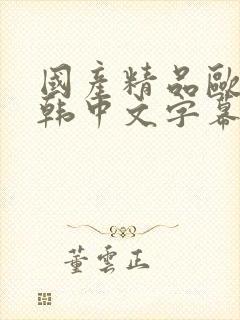 國產精品歐
韩中文字幕
董雲正